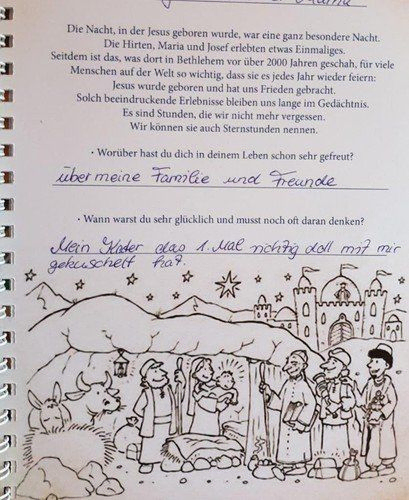 Die Nacht, in der Jesus geboren wurde, war eine ganz besondere Nacht.
Die Hirten, Maria und Josef erlebten etwas Einmaliges.
Seitdem ist das, was dort in Bethlehem vor über 2000 Jahren geschah, für viele
Menschen auf der Welt so wichtig, dass sie es jedes Jahr wieder feiern:
Jesus wurde geboren und hat uns Frieden gebracht.
Solch beeindruckende Erlebnisse bleiben uns lange im Gedächtnis.
Es sind Stunden, die wir nicht mehr vergessen.
Wir können sie auch Sternstunden nennen.
• Worüber hast du dich in deinem Leben schon sehr gefreut?
über meine Familie und Freunde
• Wann warst du sehr glücklich und musst noch oft daran denken?
Mein Kater das 1. Mal richtig doll mit mir
gekuschelt hat.